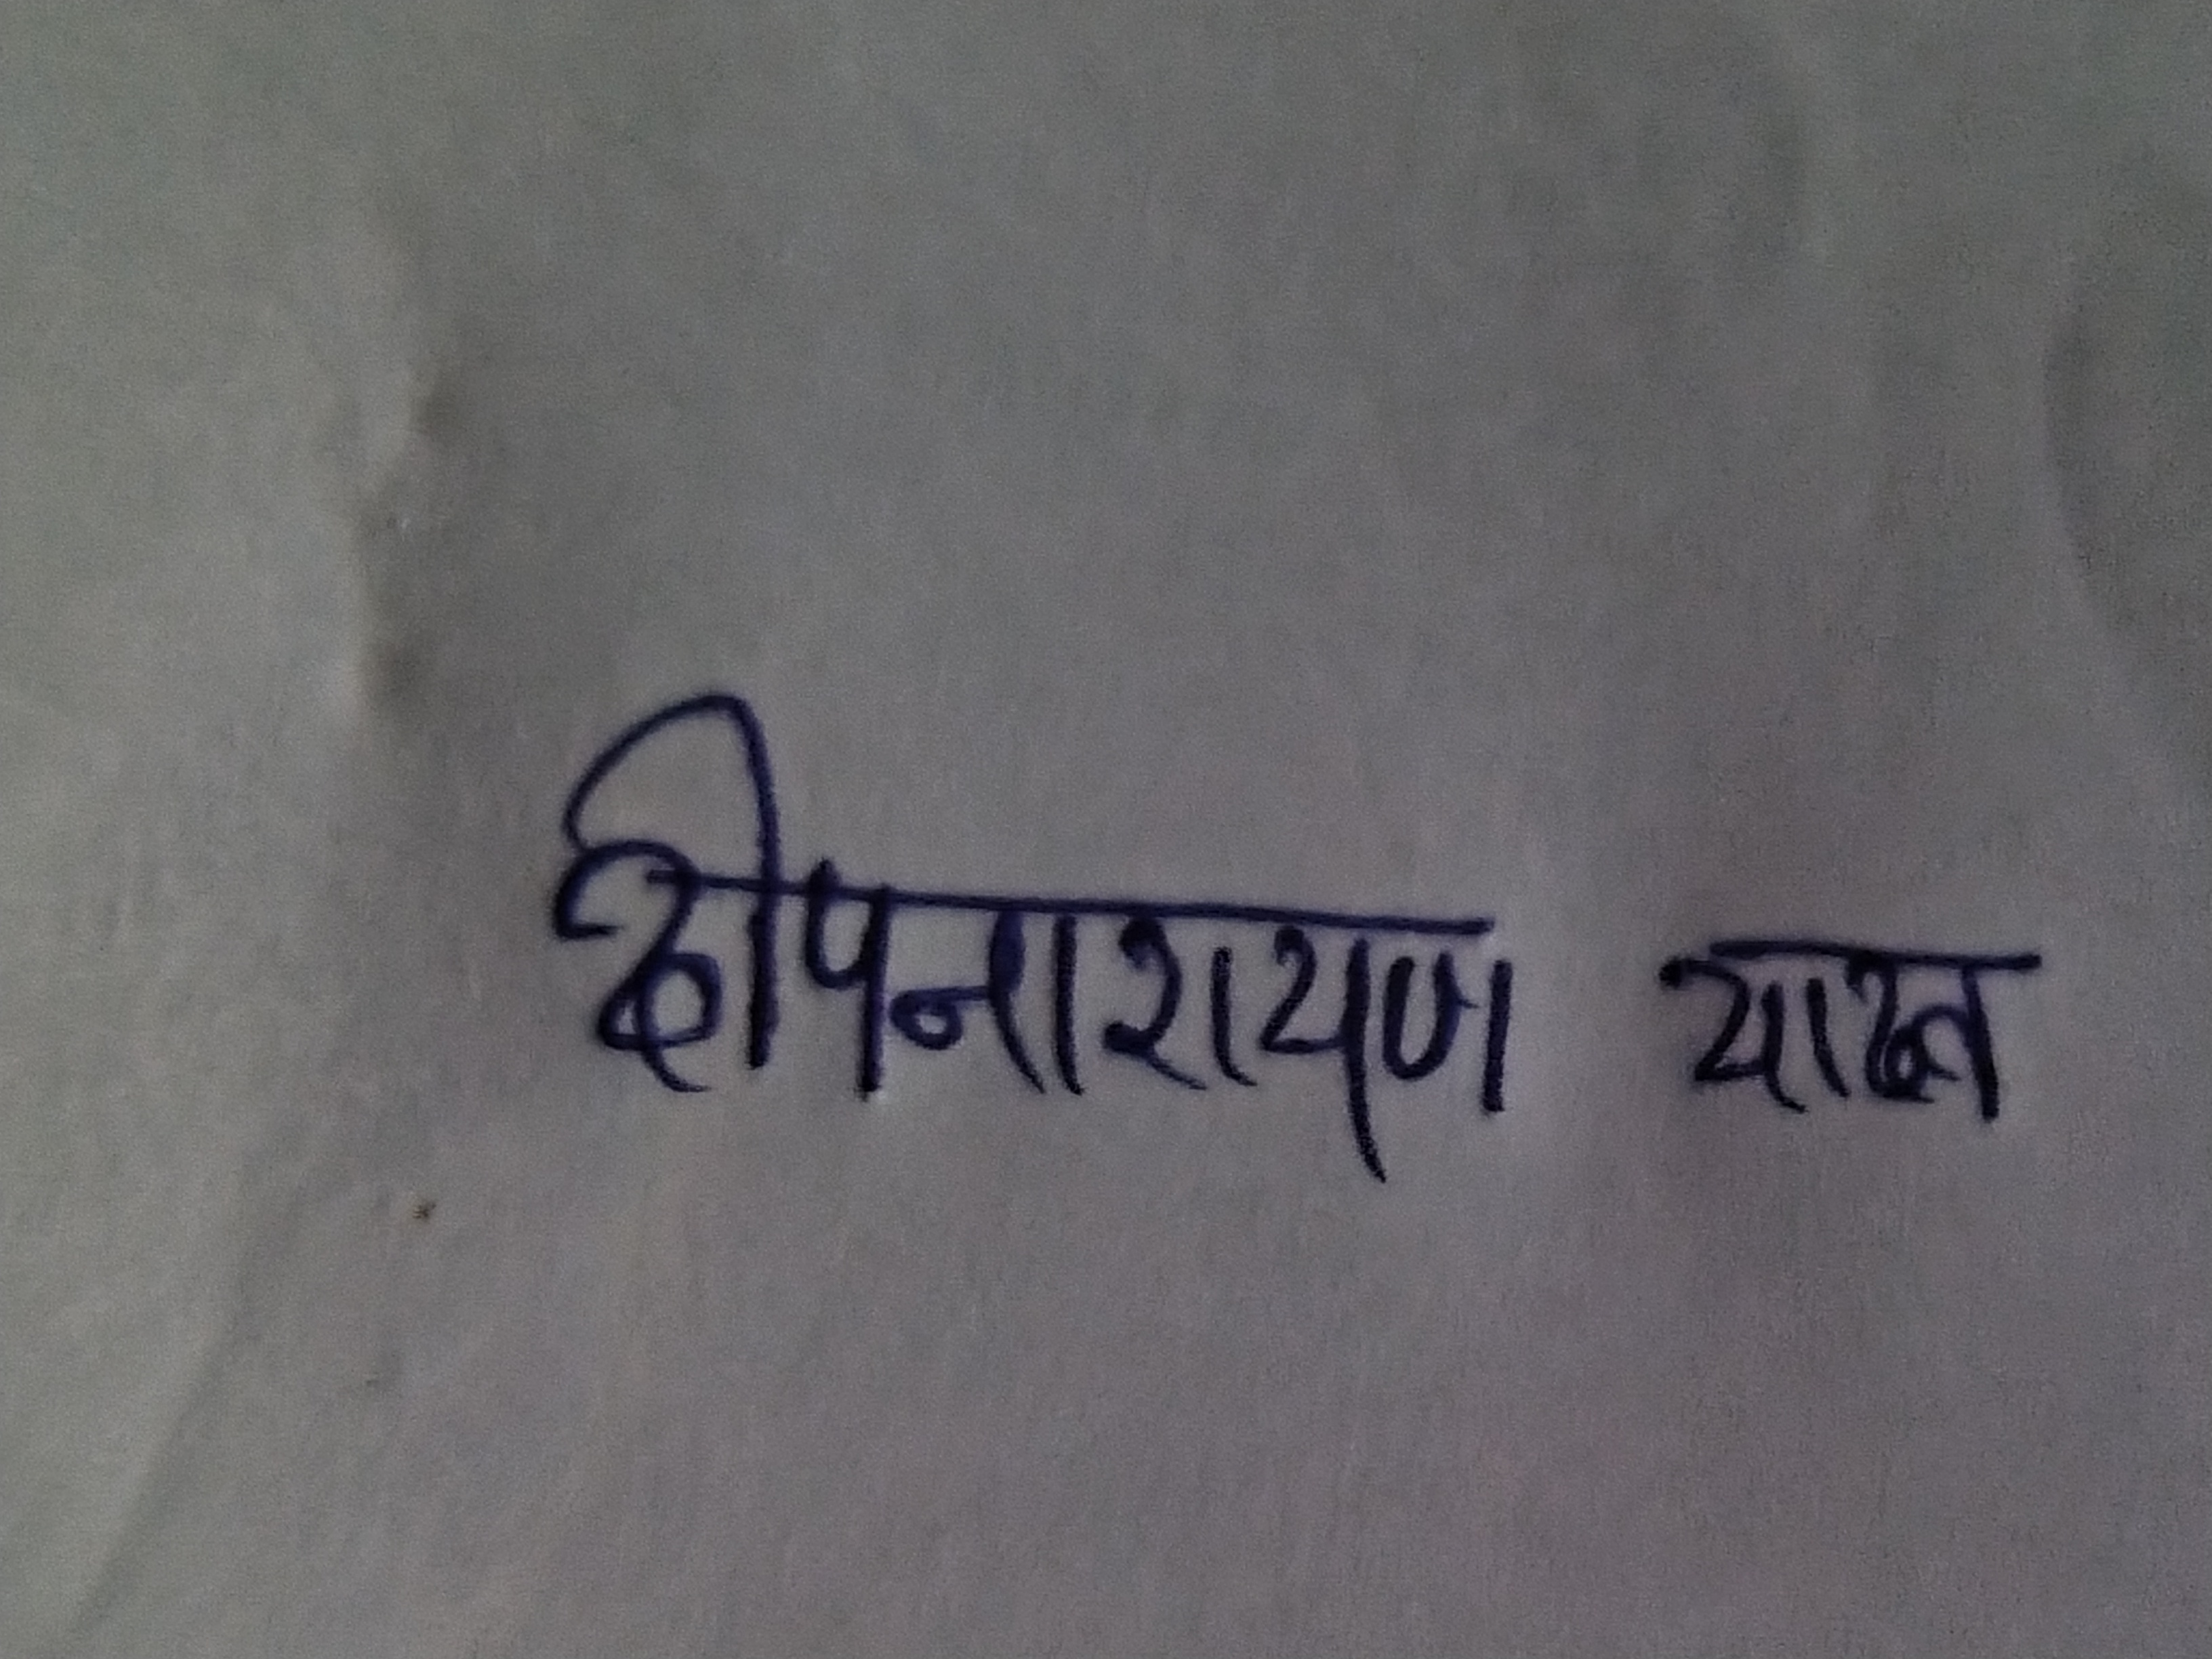 दीपनारायण यादव